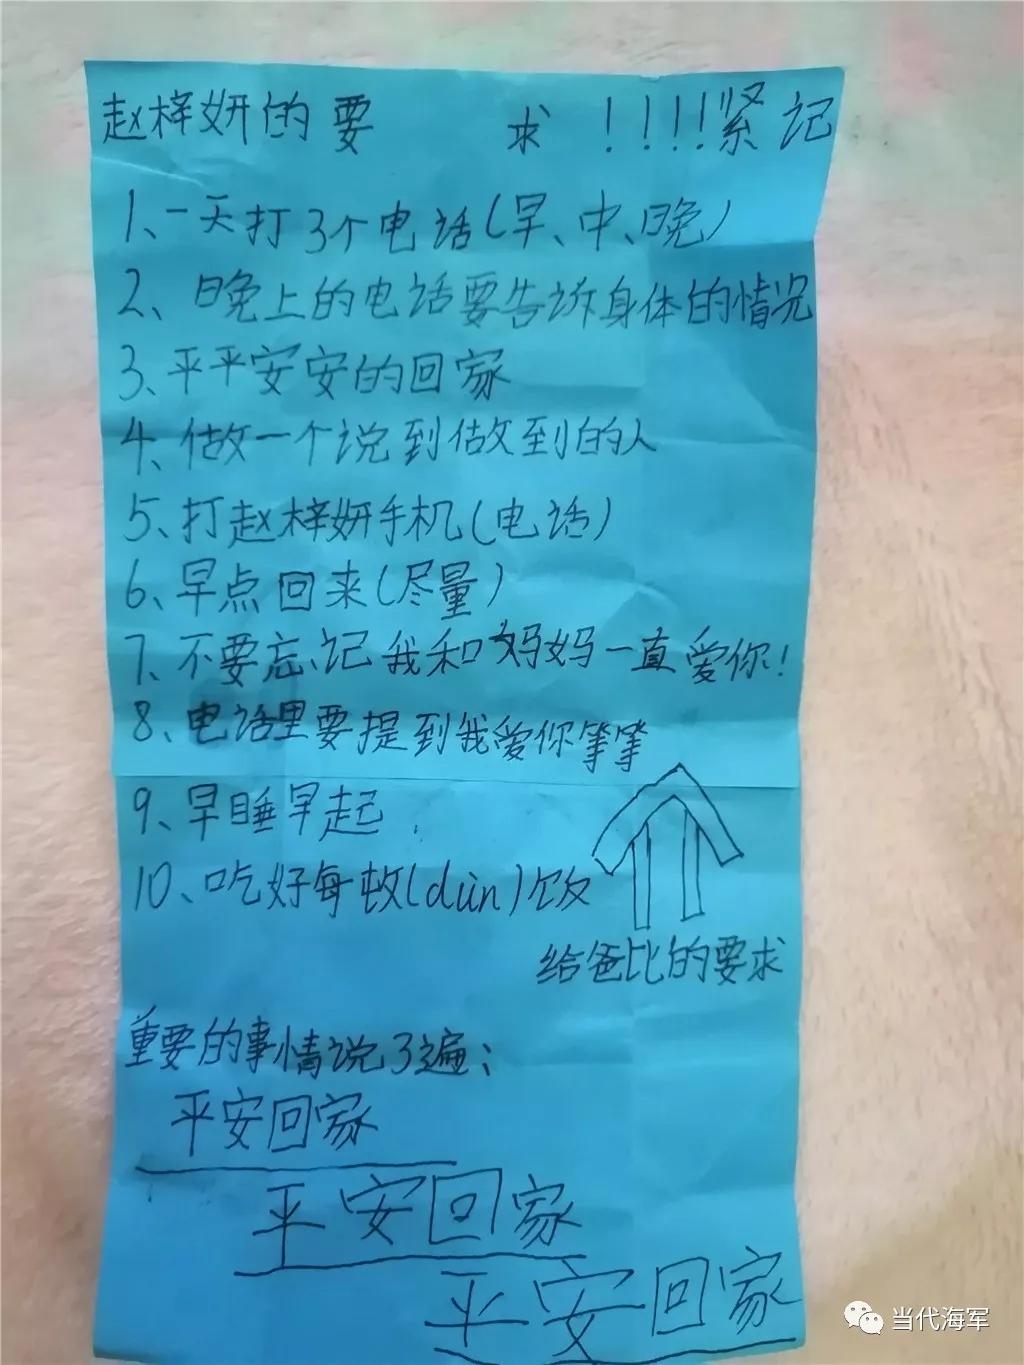 赵梓妍的要 求！！！！紧记
1、一天打3个电话(早、中、晚)
2、晚上的电话要告诉身体的情况
3、平平安安的回家
4、做一个说到做到的人
5、打赵梓妍手机(电话)
6、早点回来(尽量)
7、不要忘记我和妈妈一直爱你！
8、电话里要提到我爱你等等
9、早睡早起
10、吃好每顿(dùn)饭
给爸比的要求
重要的事情说3遍：
平安回家
平安回家
平安回家
当代海军